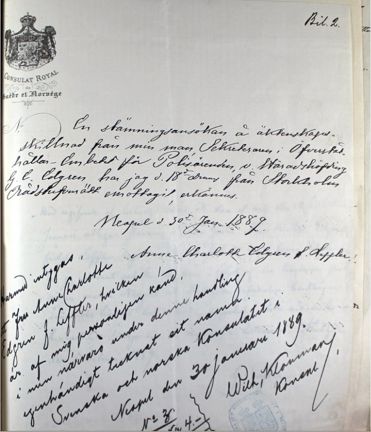 Bil. 2.
CONSULAT ROYAL
de
Suède et Norvège
No
En stämningsansökan å äktenskaps-
skillnad från min man Sekreteraren i Öfverståt-
hållar-Embetet för Polisärenden, v. Häradshöfding
G. E. Edgren har jag d. 18 dennes från Stockholms
Rådstufvurätt emottagit, erkännes.
Neapel d. 30 Jan. 1889.
Anne Charlotte Edgren f. Leffler.
Härmed intygas,
att Fru Anne Charlotte
Edgren f. Leffler, hvilken
är af mig personligen känd,
i min närvaro under denna handling
egenhändigt tecknat sitt namn.
Svenska och norska Konsulatet i
Neapel den 30 januari 1889.
Wilh.
Konsul